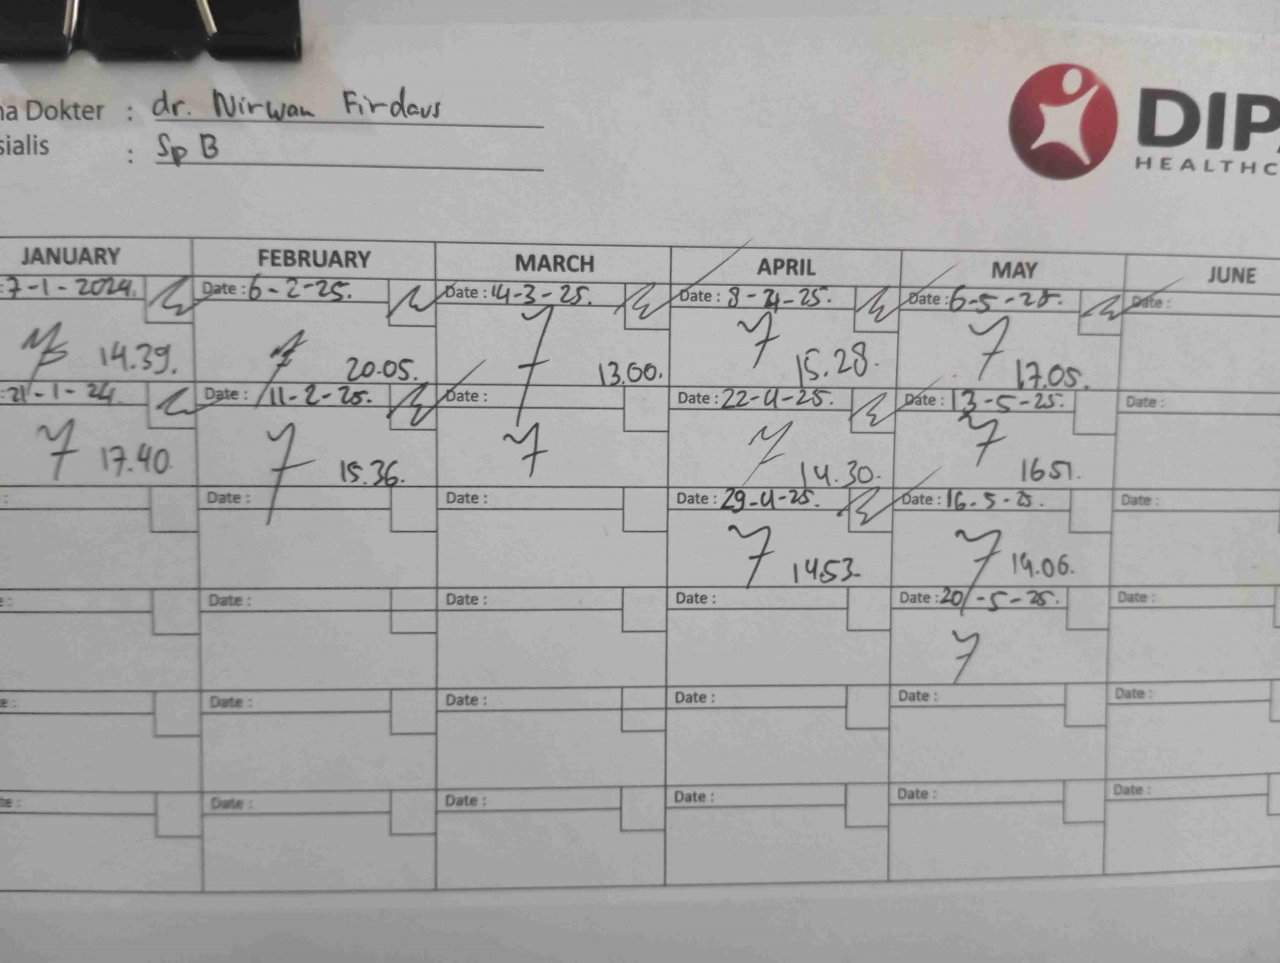 na Dokter : dr. Nirwan Firdaus
sialis : Sp B
DIPA
HEALTHC
JANUARY FEBRUARY MARCH APRIL MAY JUNE
: 7-1-2024. Date : 6-2-25. Date : 14-3-25. Date : 8-4-25. Date : 6-5-25. Date :
14.39. 20.05. 13.00. 15.28. 17.05.
: 21-1-24 Date : 11-2-25. Date : Date : 22-4-25. Date : 13-5-25. Date :
17.40. 15.36. 14.30. 1651.
: Date : Date : Date : 29-4-25. Date : 16-5-25. Date :
1453. 14.06.
e : Date : Date : Date : Date : 20-5-25. Date :
e : Date : Date : Date : Date : Date :
te : Date : Date : Date : Date : Date :